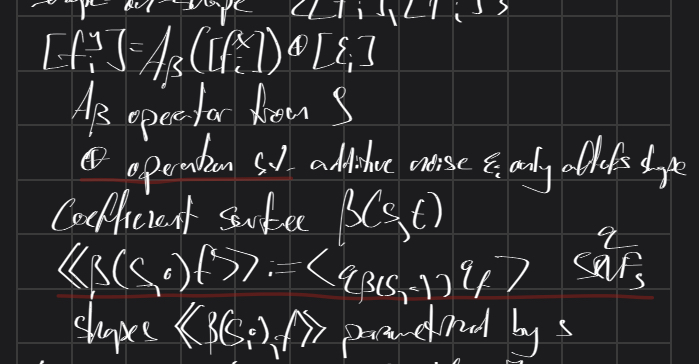 [f_i^y] = A_β([f_i^x]) ⊕ [ε_i]
A_β operator from S
⊕ operation s.t. additive noise ε_i only affects shape
Coefficient surface β(s,t)
⟪β(s,·)f⟫ := <q_β(s,·), q_f> q SRVFs
shapes ⟪β(s,·),f⟫ parametrized by s